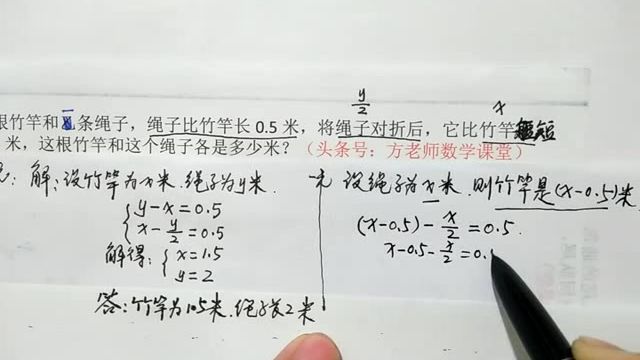 y/2 x
根竹竿和一条绳子，绳子比竹竿长 0.5 米，将绳子对折后，它比竹竿短
米，这根竹竿和这个绳子各是多少米？（头条号：方老师数学课堂）
解：设竹竿为x米.绳子为y米.
y-x=0.5
x-y/2=0.5
解得：x=1.5
y=2
答：竹竿为1.5米.绳子长2米
一元 设绳子为x米.则竹竿是(x-0.5)米
(x-0.5)-x/2=0.5.
x-0.5-x/2=0.